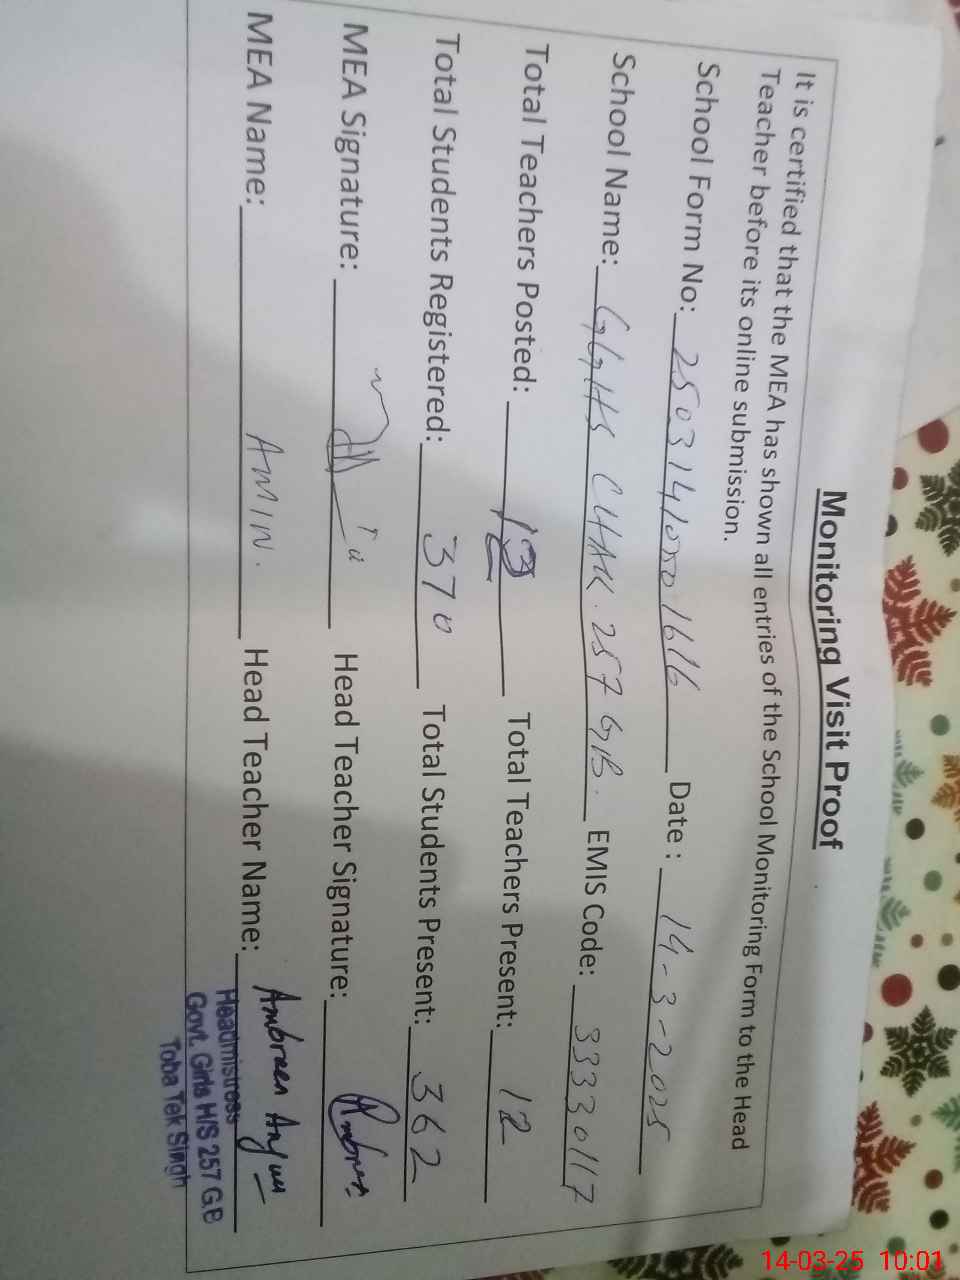 Monitoring Visit Proof
It is certified that the MEA has shown all entries of the School Monitoring Form to the Head
Teacher before its online submission.
School Form No: Date : 14-3-2025
School Name: GGHS CHAK. 257 GB. EMIS Code: 33330117
Total Teachers Posted: Total Teachers Present: 12
Total Students Registered: 370 Total Students Present: 362
MEA Signature: Head Teacher Signature:
MEA Name: AMIN. Head Teacher Name: Ambreen
Headmistress
Govt. Girls H/S 257 G.B
Toba Tek Singh
14-03-25 10:01